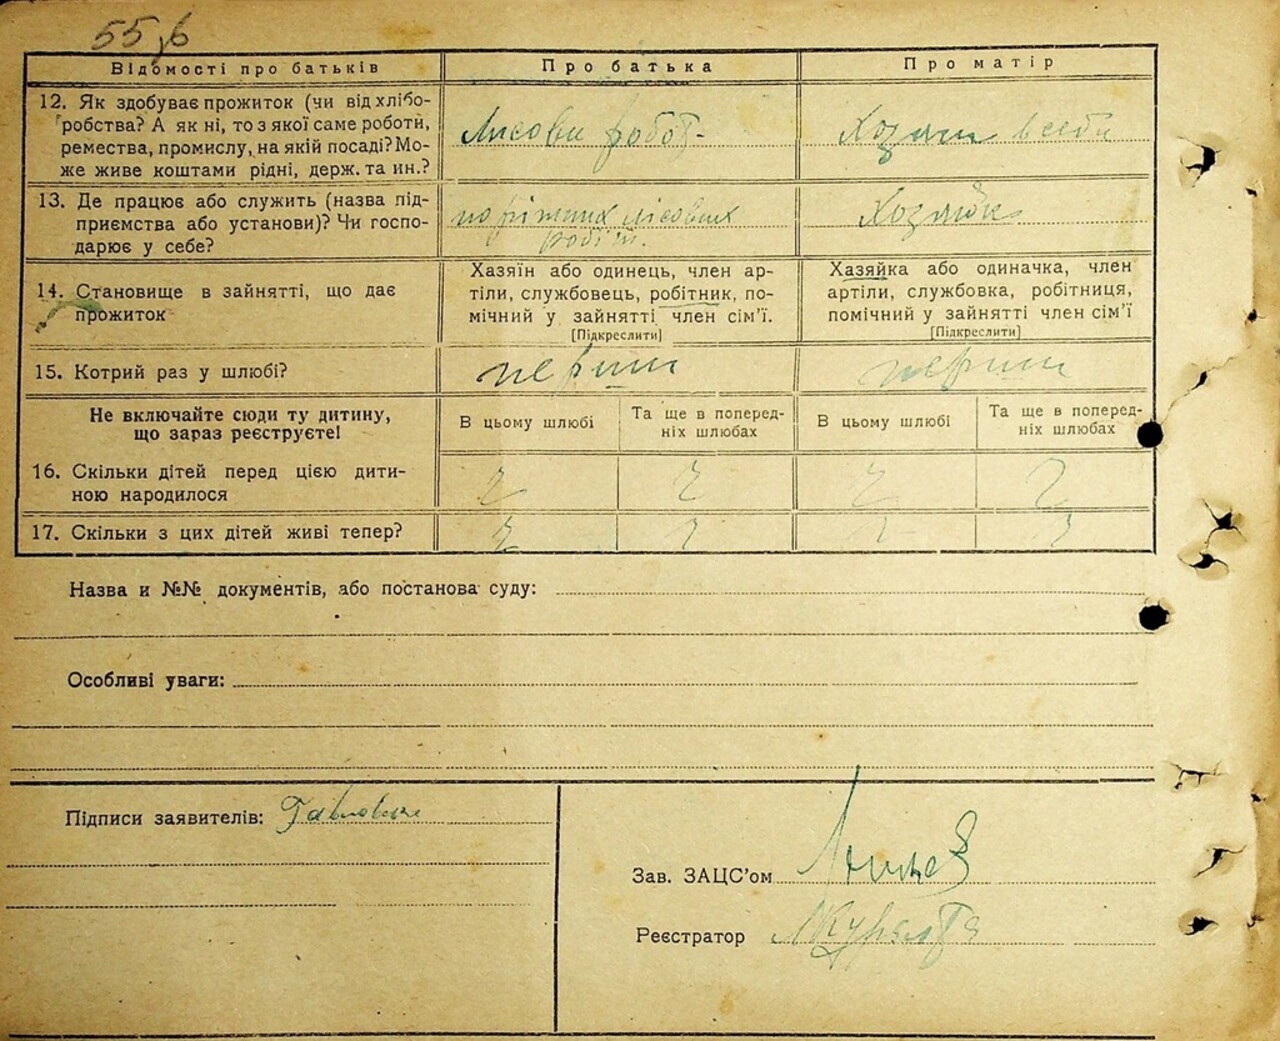 Відомості про батьків
Про батька
Про матір
12. Як здобуває прожиток (чи від хлібо-
робства? А як ні, то з якої саме роботи,
ремества, промислу, на якій посаді? Мо-
же живе коштами рідні, держ. та ин.?
Лисови робот-
Хозяин в себи
13. Де працює або служить (назва під-
приємства або установи)? Чи госпо-
дарює у себе?
по ріжних лісових
робіт.
Хозяйка
14. Становище в зайнятті, що дає
прожиток
Хазяїн або одинець, член ар-
тіли, службовець, робітник, по-
мічний у зайнятті член сім'ї.
[Підкреслити]
Хазяйка або одиначка, член
артіли, службовка, робітниця,
помічний у зайнятті член сім'ї
[Підкреслити]
15. Котрий раз у шлюбі?
перши
перши
Не включайте сюди ту дитину,
що зараз реєструєте!
В цьому шлюбі
Та ще в поперед-
ніх шлюбах
В цьому шлюбі
Та ще в поперед-
ніх шлюбах
16. Скільки дітей перед цією дити-
ною народилося
17. Скільки з цих дітей живі тепер?
Назва и №№ документів, або постанова суду:
Особливі уваги:
Підписи заявителів:
Зав. ЗАЦС'ом
Реєстратор